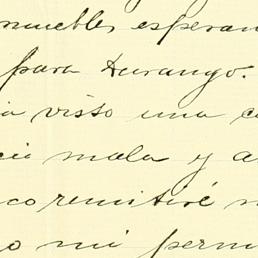 muebles esperan
para Durango.
ia visto una c
cie mala y a
co remitiré n
o mi perm